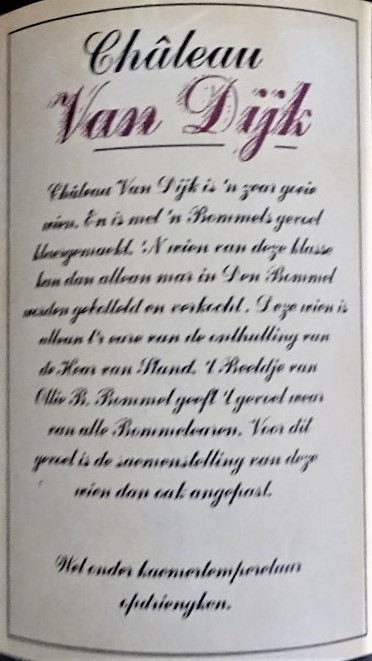 Château
Van Dijk
Château Van Dijk is 'n zear goeie
wien. En is met 'n Bommels gevoel
klaergemaekt. 'N wien van deze klasse
kan dan allean mar in Den Bommel
worden gebotteld en verkocht. Deze wien is
allean t'r eare van de onthulling van
de Hear van Stand. 't Beeldje van
Ollie B. Bommel geeft 't gevoel wear
van alle Bommelearen. Voor dit
gevoel is de saemenstelling van deze
wien dan oak angepast.
Wel onder kaemertemperetuur
opdriengken.